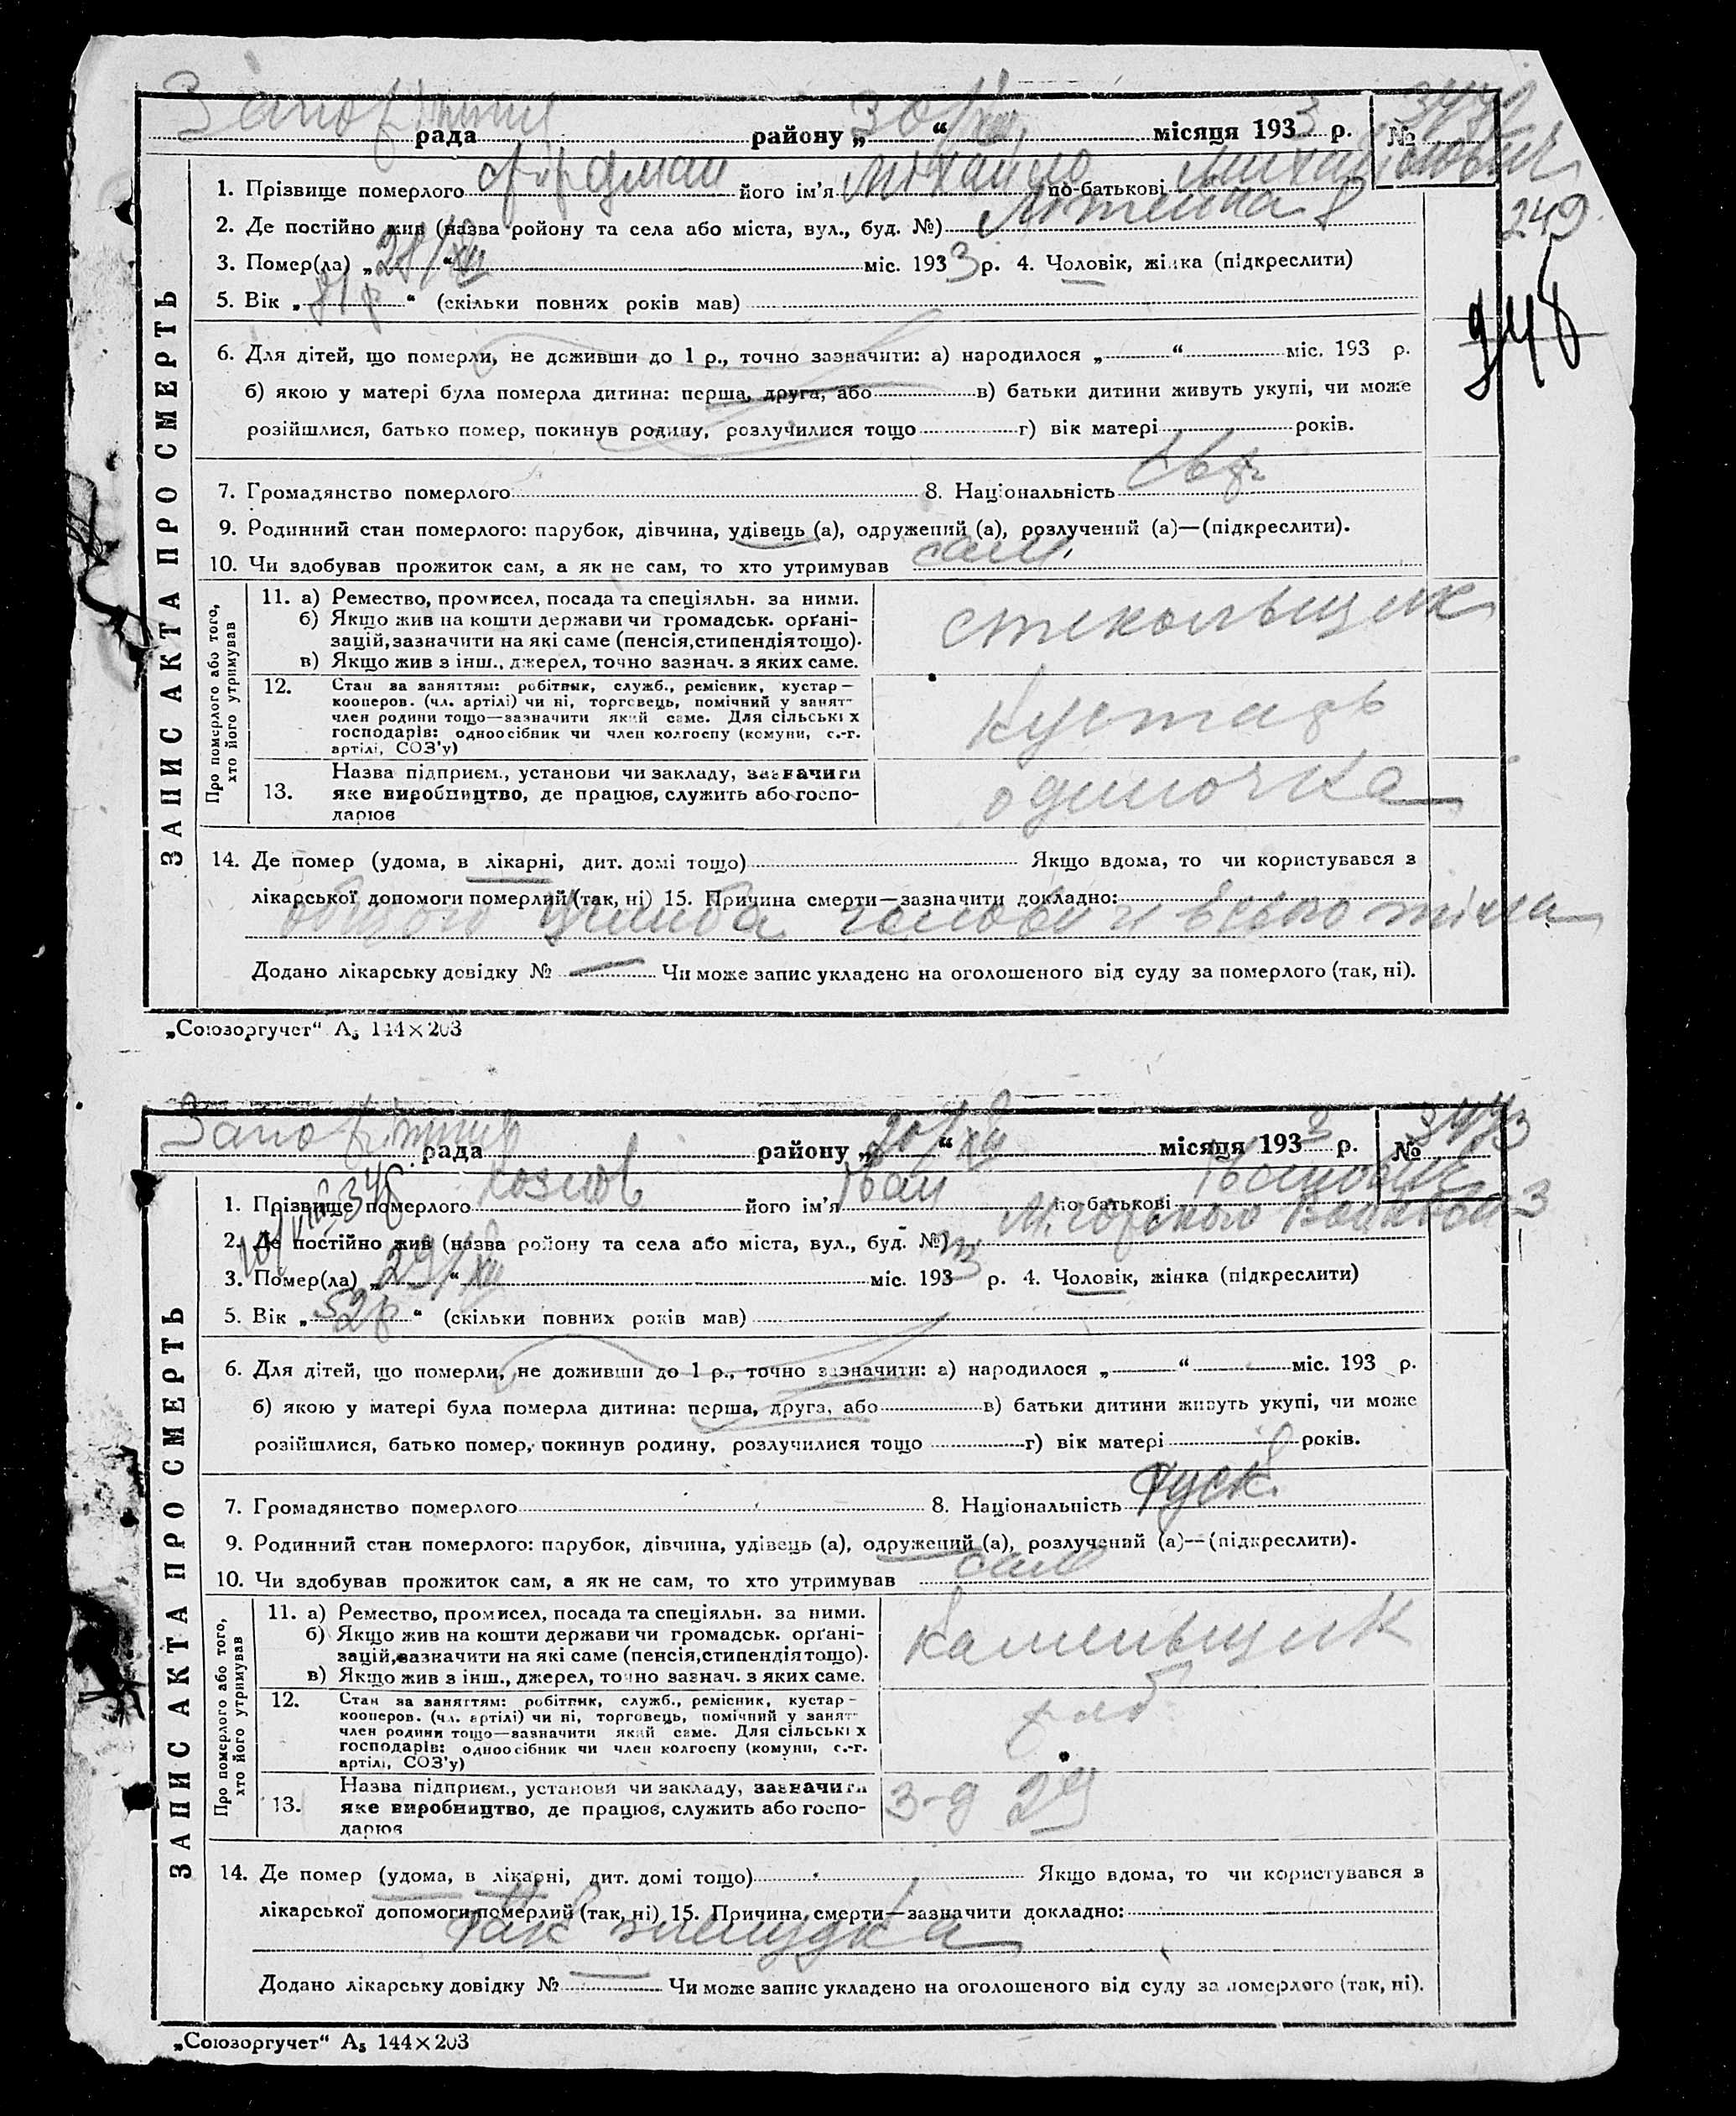 рада району „30/XII“ місяця 1933 р. №
1. Прізвище померлого Фрідман його ім'я Міхайло по-батькові Михайлович
249
2. Де постійно жив (назва ройону та села або міста, вул., буд. №) 8
3. Помер(ла) „28/XII“ міс. 1933 р. 4. Чоловік, жінка (підкреслити)
5. Вік „ р“ (скільки повних років мав)
6. Для дітей, що померли, не доживши до 1 р., точно зазначити: а) народилося „ “ міс. 193 р.
б) якою у матері була померла дитина: перша, друга, або в) батьки дитини живуть укупі, чи може
розійшлися, батько помер, покинув родину, розлучилися тощо г) вік матері років.
7. Громадянство померлого 8. Національність Євр.
9. Родинний стан померлого: парубок, дівчина, удівець (а), одружений (а), розлучений (а)—(підкреслити).
10. Чи здобував прожиток сам, а як не сам, то хто утримував сам
ЗАПИС АКТА ПРО СМЕРТЬ
Про померлого або того, хто його утримував
11. а) Ремество, промисел, посада та спеціяльн. за ними.
б) Якщо жив на кошти держави чи громадськ. орґані-
зацій, зазначити на які саме (пенсія, стипендія тощо).
в) Якщо жив з інш., джерел, точно зазнач. з яких саме.
стекольщик
12. Стан за заняттям: робітник, служб., ремісник, кустар—
кооперов. (чл. артілі) чи ні, торговець, помічний у занят-
член родини тощо—зазначити який саме. Для сільських
господарів: одноосібник чи член колгоспу (комуни, с.-г.
артілі, СОЗ'у)
Кустарь
13. Назва підприєм., установи чи закладу, зазначити
яке виробництво, де працює, служить або госпо-
дарює
одиночка
14. Де помер (удома, в лікарні, дит. домі тощо) Якщо вдома, то чи користувався з
лікарської допомоги померлий (так, ні) 15. Причина смерти—зазначити докладно:
общого ушиба голови и всього тіла
Додано лікарську довідку № — Чи може запис укладено на оголошеного від суду за померлого (так, ні).
„Союзоргучет“ А₅ 144×203
рада району „30/XII“ місяця 1933 р. № 3473
1. Прізвище померлого Козлов його ім'я Іван по-батькові Іванович
2. Де постійно жив (назва ройону та села або міста, вул., буд. №) М. Горького
3. Помер(ла) „29/XII“ міс. 1933 р. 4. Чоловік, жінка (підкреслити)
5. Вік „52 р“ (скільки повних років мав)
6. Для дітей, що померли, не доживши до 1 р., точно зазначити: а) народилося „ “ міс. 193 р.
б) якою у матері була померла дитина: перша, друга, або в) батьки дитини живуть укупі, чи може
розійшлися, батько помер, покинув родину, розлучилися тощо г) вік матері років.
7. Громадянство померлого 8. Національність Руск.
9. Родинний стан померлого: парубок, дівчина, удівець (а), одружений (а), розлучений (а)—(підкреслити).
10. Чи здобував прожиток сам, а як не сам, то хто утримував сам
ЗАПИС АКТА ПРО СМЕРТЬ
Про померлого або того, хто його утримував
11. а) Ремество, промисел, посада та спеціяльн. за ними.
б) Якщо жив на кошти держави чи громадськ. орґані-
зацій, зазначити на які саме (пенсія, стипендія тощо).
в) Якщо жив з інш., джерел, точно зазнач. з яких саме.
Каменьщик
12. Стан за заняттям: робітник, служб., ремісник, кустар—
кооперов. (чл. артілі) чи ні, торговець, помічний у занят-
член родини тощо—зазначити який саме. Для сільських
господарів: одноосібник чи член колгоспу (комуни, с.-г.
артілі, СОЗ'у)
роб
13. Назва підприєм., установи чи закладу, зазначити
яке виробництво, де працює, служить або госпо-
дарює
З-д 29
14. Де помер (удома, в лікарні, дит. домі тощо) Якщо вдома, то чи користувався з
лікарської допомоги померлий (так, ні) 15. Причина смерти—зазначити докладно:
Рак желудка
Додано лікарську довідку № — Чи може запис укладено на оголошеного від суду за померлого (так, ні).
„Союзоргучет“ А₅ 144×203